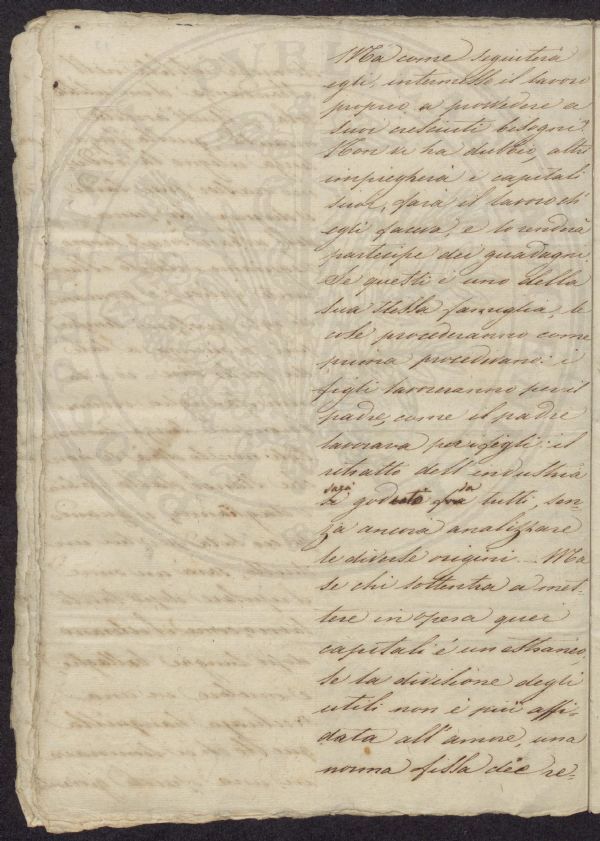 Ma come seguiterà
egli, intermesso il lavoro
proprio a provvedere a
suoi cresciuti bisogni?
Non vi ha dubbio, altri
impiegherà i capitali
suoi, farà il lavoro ch'
egli faceva, e lo renderà
partecipe dei guadagni.
Se questi è uno della
sua stessa famiglia, le
cose procederanno come
prima procedevano: i
figli lavoreranno per il
padre, come il padre
lavorava per i figli: il
ritratto dell'industria
sarà da
si goduto fra tutti, sen-
za ancora analizzare
le diverse origini. Ma
se chi sottentra a met-
tere in opera quei
capitali è un estraneo,
se la divisione degli
utili non è più affi-
data all'amore, una
norma fissa dee re-